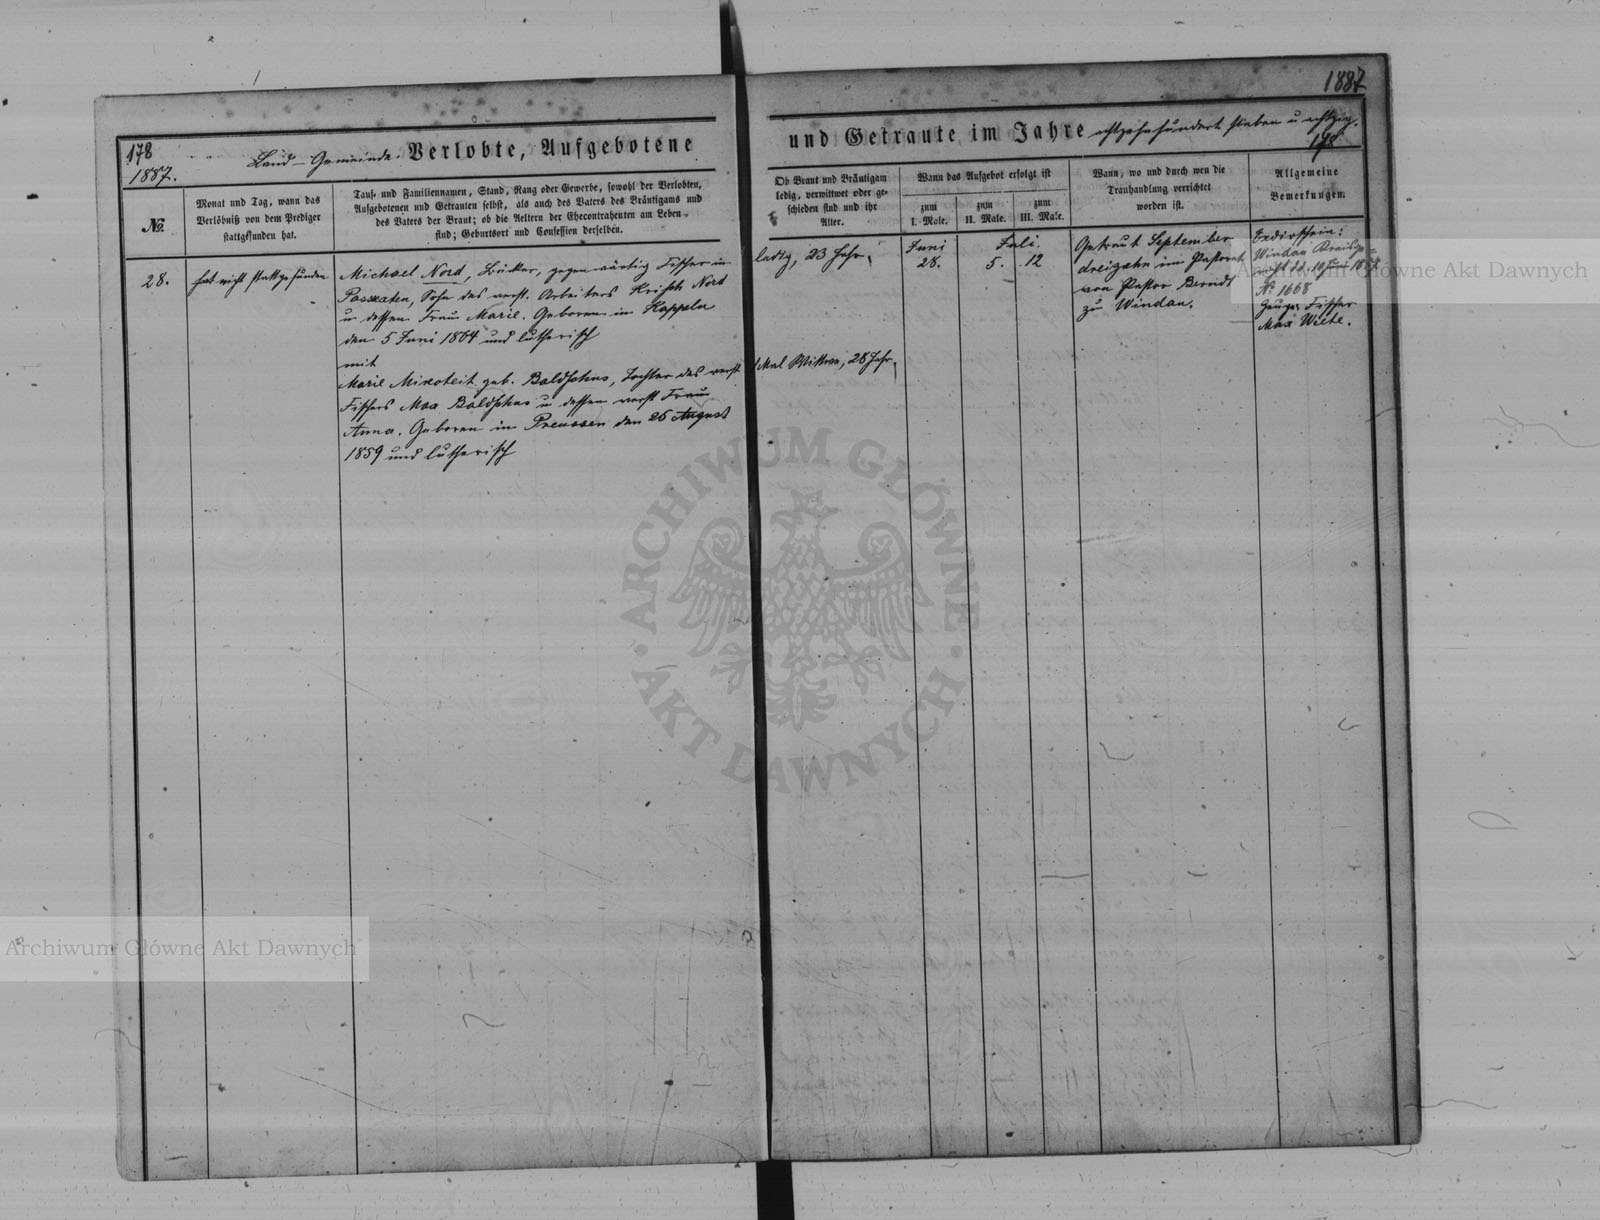 1887
178
1887.
Land-Gemeinde. Verlobte, Aufgebotene
und Getraute im Jahre achtzehnhundert sieben u achtzig.
178
№.
Monat und Tag, wann das
Verlöbniß von dem Prediger
stattgefunden hat.
Tauf- und Familiennamen, Stand, Rang oder Gewerbe, sowohl der Verlobten,
Aufgebotenen und Getrauten selbst, als auch des Vaters des Bräutigams und
des Vaters der Braut; ob die Aeltern der Ehecontrahenten am Leben
sind; Geburtsort und Confession derselben.
Ob Braut und Bräutigam
ledig, verwittwet oder ge-
schieden sind und ihr
Alter.
Wann das Aufgebot erfolgt ist
zum
I. Male.
zum
II. Male.
zum
III. Male.
Wann, wo und durch wen die
Trauhandlung verrichtet
worden ist.
Allgemeine
Bemerkungen.
28.
hat nicht stattgefunden
Michael Nord, gegenwärtig Fischer in
Sohn des verst. Arbeiters Krisch Nord
u dessen Frau Marie. Geboren in Kappeln
den 5 Juni 1864 und lutherisch
mit
Marie Mixoteit geb. Baldschus, Tochter des verst
Fischers Max Baldschus u dessen verst Frau
Anna. Geboren in Preussen den 26 August
1859 und lutherisch
ledig, 23 Jahr,
1 Mal Wittwe, 28 Jahr,
Juni
28.
Juli.
5. 12
Getraut September
dreizehn im Pastorat
von Pastor Berndt
zu Windau.
Windau Kreisge-
№ 1668
Zeuge: Fischer
Max Wiete.
Archiwum Główne Akt Dawnych
ARCHIWUM GŁÓWNE
AKT DAWNYCH
Archiwum Główne Akt Dawnych